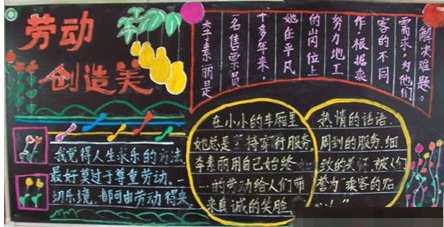 劳动
创造美
李素丽是
名售票员
十多年来，
她在平凡
的岗位上
努力地工
作，根据乘
客的不同
需求，为他们
解决难题。
我觉得人生求乐的方法，
最好莫过于尊重劳动。一
切乐境，都可由劳动得
在小小的车厢里
她总是持行服务
李素丽用自己始终
一的劳动给人们带
来真诚的笑脸
热情的话语、
周到的服务、细
致的关怀，被人们
誉为"乘客的贴